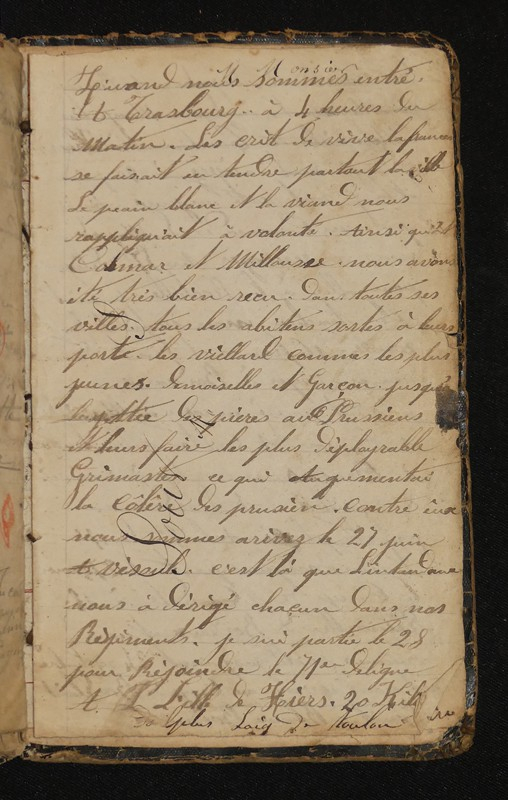 Quand nous sommes entré
à Strasbourg. à 4 heures du
Matin. Les crit de vive lafrance
se faisait en tendre partout la ville
Le peain blanc et la viand nous
rappliquait à volonté. Ainsi qu'à
Colmar et Millouse. nous avons
été très bien recu. dan. toutes ses
villes. tous les abitens sortes à leurs
porte. les viellard commes les plus
jeunes. demoiselles et Garçon. jusqu'à
des pières aux Prussiens
et leurs faire les plus déployrable
Grimaste ce qui augementai
la côlère des prusien. contre eux
nous sommes arivez le 27 juin
à vésoul. c'est là que Lintendance
nous à dérigé chaqun dans nos
Régiments. je sui partie le 28
pour Réjoindre le 71e deligne
à la ville de Hiers. 20 Kilo
plus Loig de toulon